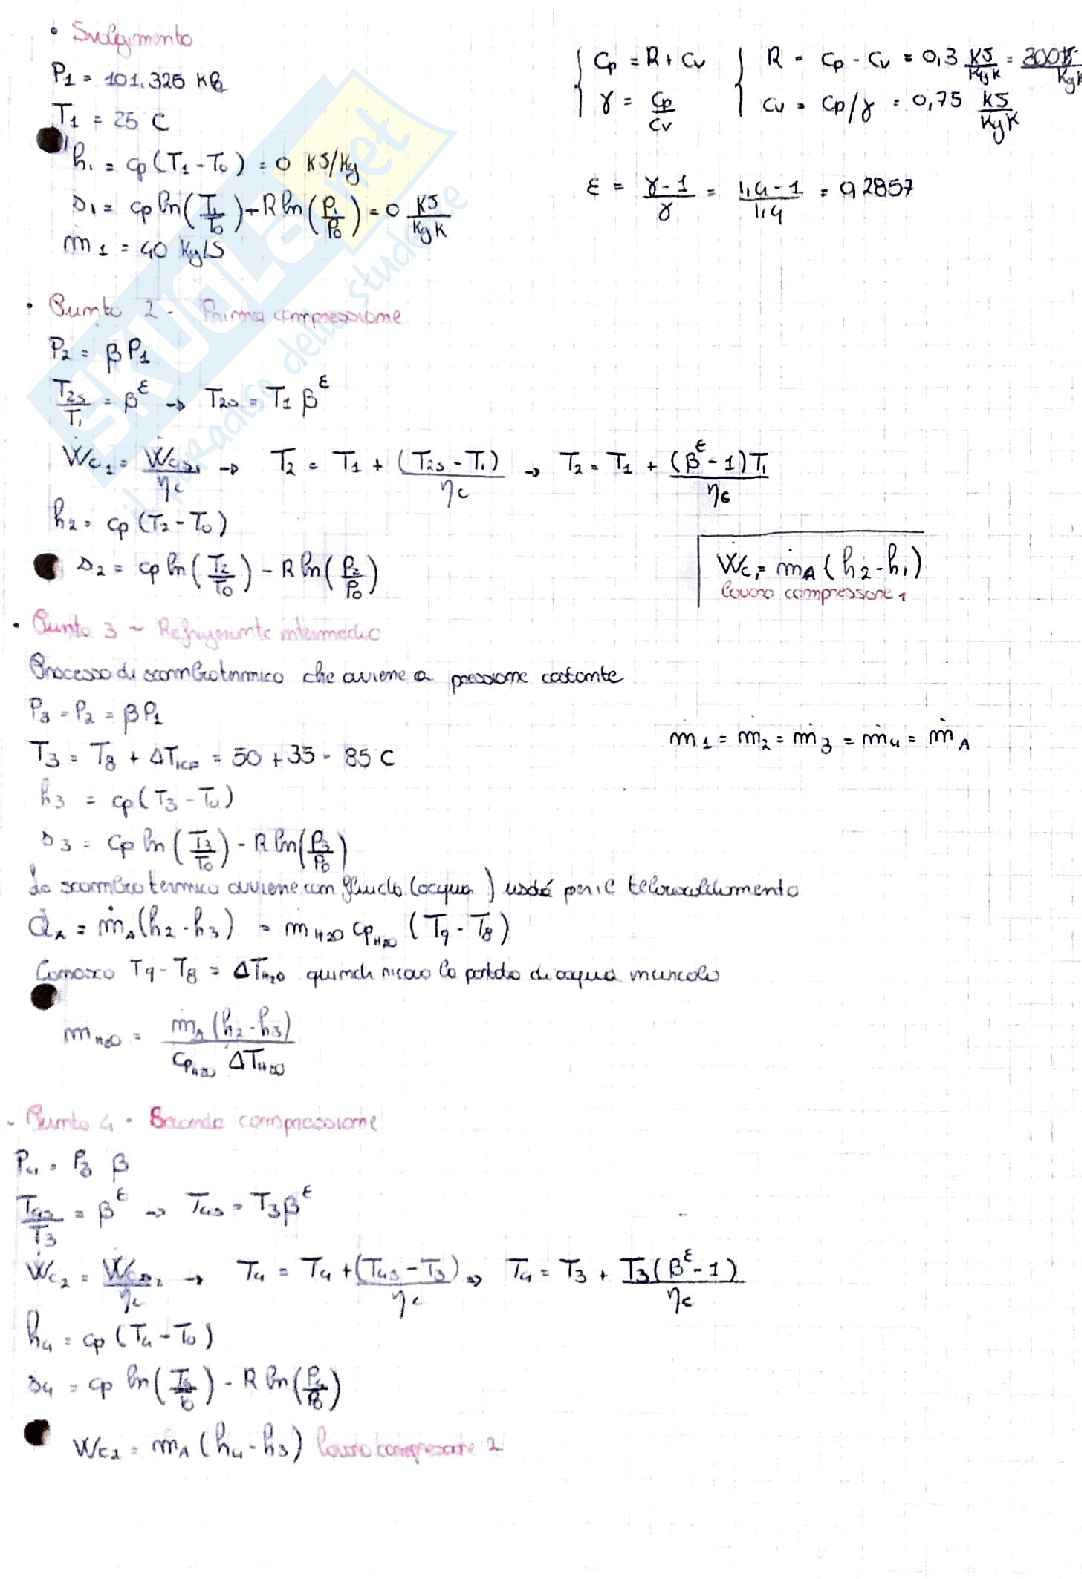 • Svolgimento
P1 = 101.325 kPa
T1 = 25 C
h1 = cp(T1-T0) = 0 KJ/Kg
s1 = cp ln(T1/T0) - R ln(P1/P0) = 0 KJ/KgK
ṁ1 = 40 Kg/S
{ Cp = R + Cv
γ = Cp/Cv
{ R = Cp - Cv = 0,3 KJ/KgK = 300 J/KgK
Cv = Cp/γ = 0,75 KJ/KgK
ε = (γ-1)/γ = (1,4-1)/1,4 = 0,2857
• Punto 2 - Prima compressione
P2 = β P1
T2s/T1 = β^ε → T2s = T1 β^ε
Ẇc1 = Ẇcs1/ηc → T2 = T1 + (T2s - T1)/ηc → T2 = T1 + (β^ε - 1)T1/ηc
h2 = cp(T2-T0)
s2 = cp ln(T2/T0) - R ln(P2/P0)
Ẇc1 = ṁA (h2-h1)
lavoro compressore 1
• Punto 3 - Refrigerante intermedio
Processo di scambio termico che avviene a pressione costante
P3 = P2 = β P1
T3 = T8 + ΔTICP = 50 + 35 = 85 C
ṁ1 = ṁ2 = ṁ3 = ṁ4 = ṁA
h3 = cp(T3-T0)
s3 = cp ln(T3/T0) - R ln(P3/P0)
Lo scambio termico avviene con fluido (acqua) per il teleriscaldamento
Q̇A = ṁA(h2-h3) = ṁH2O cpH2O (T9-T8)
Conosco T9-T8 = ΔTH2O quindi ricavo la portata di acqua
ṁH2O = ṁA (h2-h3) / cpH2O ΔTH2O
- Punto 4 - Seconda compressione
P4 = P3 β
T4s/T3 = β^ε → T4s = T3 β^ε
Ẇc2 = Ẇcs2/ηc → T4 = T4 + (T4s - T3)/ηc → T4 = T3 + T3(β^ε - 1)/ηc
h4 = cp (T4-T0)
s4 = cp ln(T4/T0) - R ln(P4/P0)
Ẇc2 = ṁA (h4-h3) lavoro compressore 2
SKUOLA.net
il paradiso dello studente